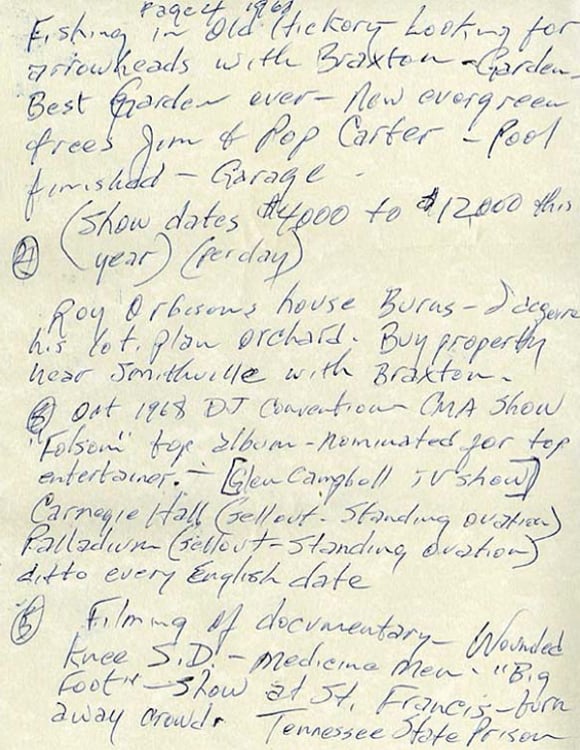 Page 4 1968
Fishing in Old Hickory Looking for
arrowheads with Braxton - Garden -
Best Garden ever - New evergreen
trees Jim & Pop Carter - Pool
finished - Garage -
(Show dates $4000 to $12,000 this
year) (per day)
Roy Orbisons house Burns - I acquire
his lot. Plan orchard. Buy property
near Smithville with Braxton -
Oct 1968 DJ Convention CMA Show
"Folsom" top album - nominated for top
entertainer. - [Glen Campbell TV show]
Carnegie Hall (sellout - Standing ovation)
Palladium (sellout - Standing ovation)
ditto every English date
5 Filming of documentary - Wounded
Knee S.D. - Medicine Men - "Big
Foot" - Show at St. Francis - turn
away crowd. Tennessee State Prison